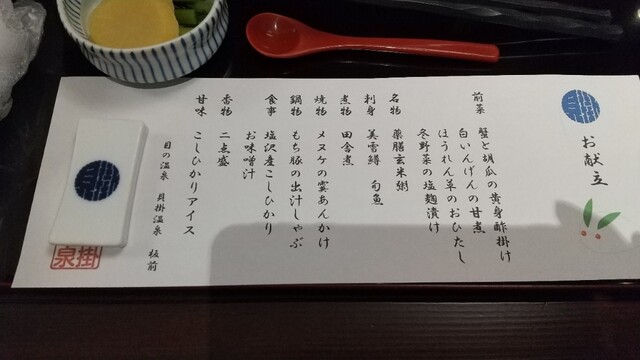 お献立
前菜 蟹と胡瓜の黄身酢掛け
白いんげんの甘煮
ほうれん草のおひたし
冬野菜の塩麹漬け
名物 薬膳玄米粥
刺身 美雪鱒 旬魚
煮物 田舎煮
焼物 メヌケの霙あんかけ
鍋物 もち豚の出汁しゃぶ
食事 塩沢産こしひかり
お味噌汁
香物 二点盛
甘味 こしひかりアイス
目の温泉 貝掛温泉 板前
掛
泉